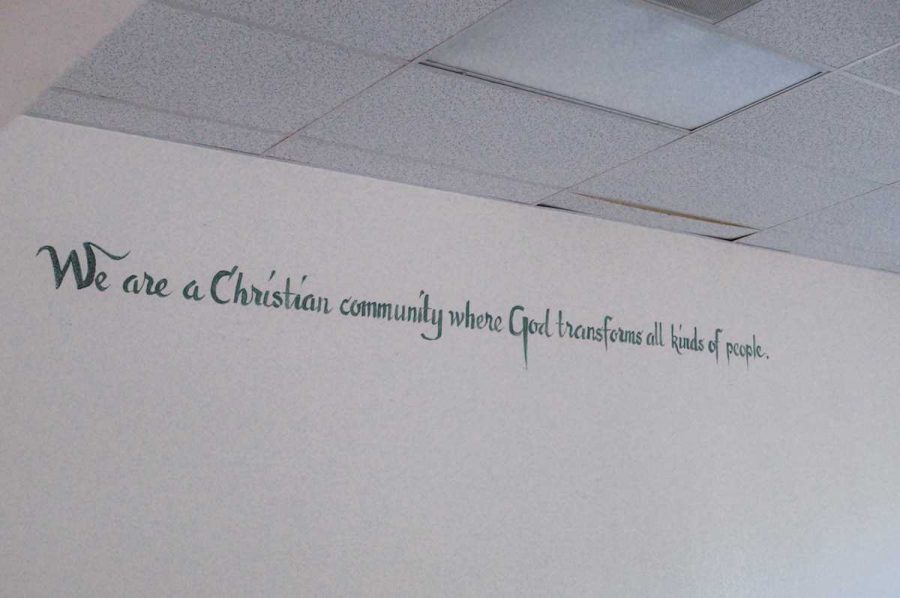 We are a Christian community where God transforms all kinds of people.